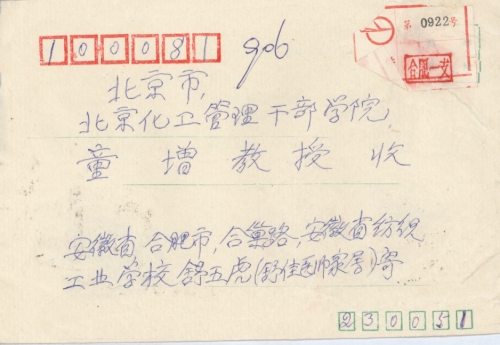 第 0922号
合肥一支
100081 906
北京市,
北京化工管理干部学院,
童增教授 收
安徽省,合肥市,合巢路,安徽省纺织
工业学校 舒五虎(舒佳)寄
230051